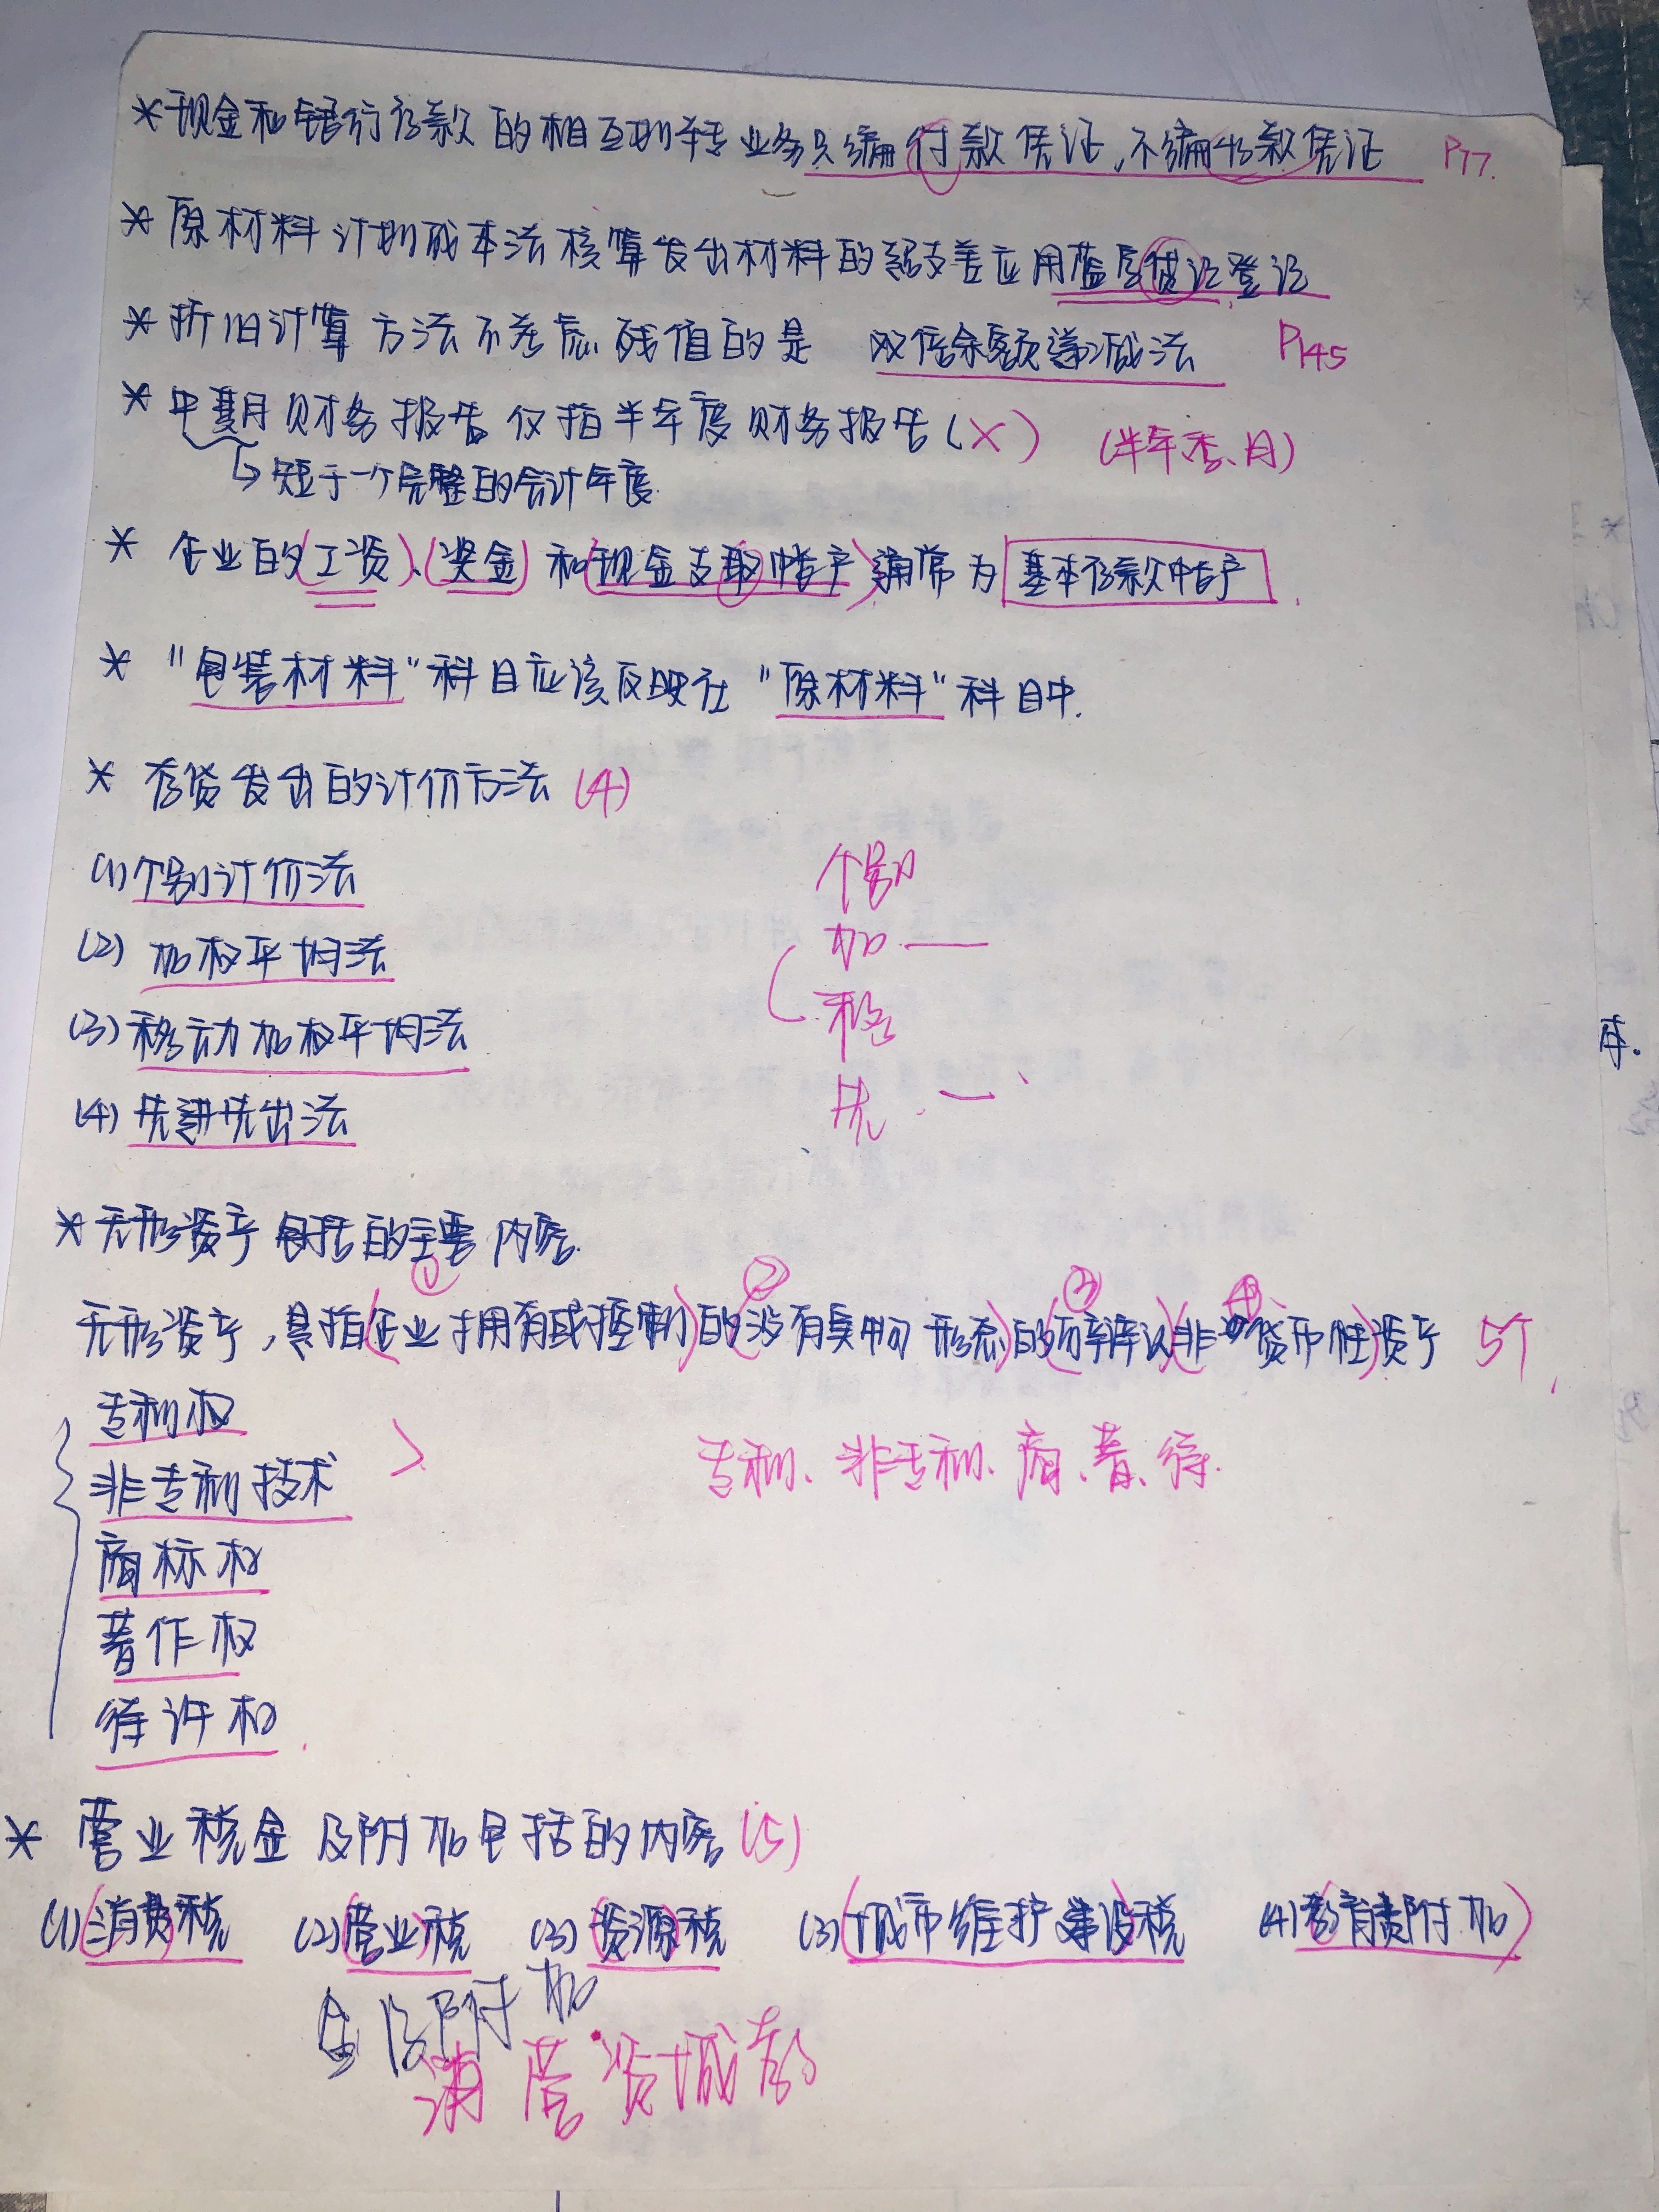 *现金和银行存款的相互划转业务只编付款凭证,不编收款凭证 P17.
*原材料计划成本法核算发出材料的超支差应用蓝字贷记登记
*折旧计算方法不考虑残值的是 双倍余额递减法 P145
*中期财务报告仅指半年度财务报告(×) (半年.季.月)
↳短于一个完整的会计年度.
* 企业的(工资)、(奖金)和(现金支取帐户)通常为 基本存款帐户.
* "包装材料"科目应该反映在"原材料"科目中.
* 存货发出的计价方法 (4)
(1)个别计价法 个别
(2) 加权平均法 加—
(3)移动加权平均法 移
(4)先进先出法 先.一、
*无形资产包括的主要内容.
① ② ③ ④
无形资产,是指(企业拥有或控制)的(没有实物形态)的(可辨认)(非货币性)资产 5个
专利权
非专利技术 专利、非专利、商、著、特.
商标权
著作权
特许权
* 营业税金及附加包括的内容 (5)
(1)(消费)税 (2)(营业)税 (3)(资源)税 (3)(城市维护建设)税 (4)(教育费附加)
金及附加
消营资城教